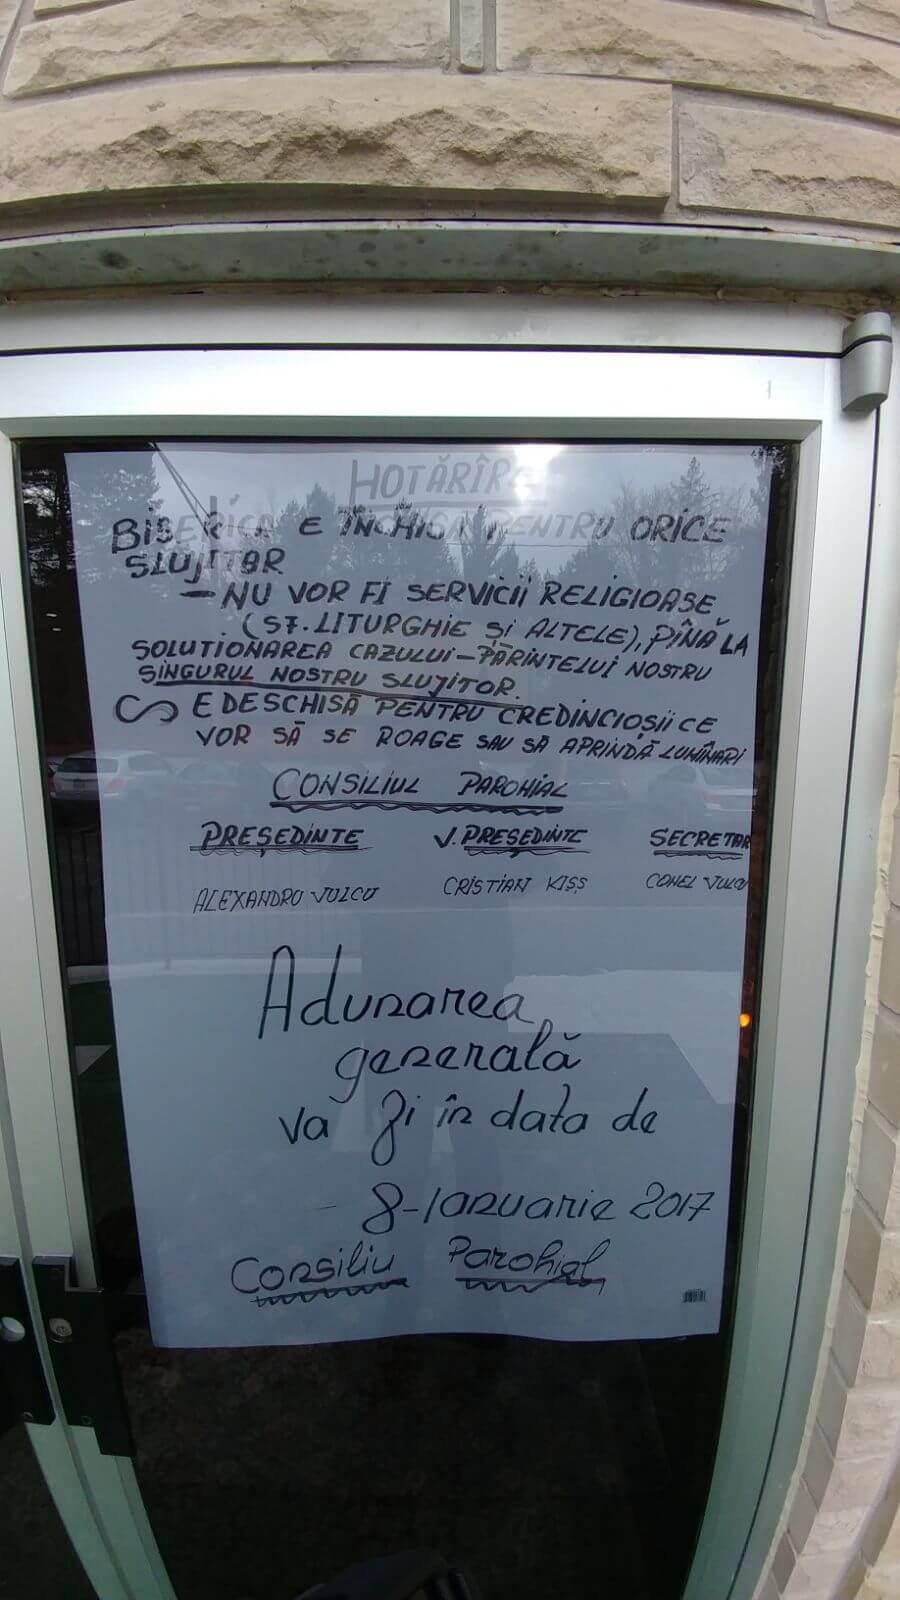 HOTĂRÎRE
BISERICA E ÎNCHISA PENTRU ORICE
SLUJITOR
– NU VOR FI SERVICII RELIGIOASE
(SF. LITURGHIE ȘI ALTELE), PÎNĂ LA
SOLUTIONAREA CAZULUI – PĂRINTELUI NOSTRU
SINGURUL NOSTRU SLUJITOR.
E DESCHISĂ PENTRU CREDINCIOȘII CE
VOR SĂ SE ROAGE SAU SĂ APRINDĂ LUMÎNARI
CONSILIUL PAROHIAL
PREȘEDINTE V. PREȘEDINTE SECRETAR
ALEXANDRU VULCU CRISTIAN KISS VULCU
Adunarea
generală
va fi în data de
8-Ianuarie 2017
Consiliu Parohial